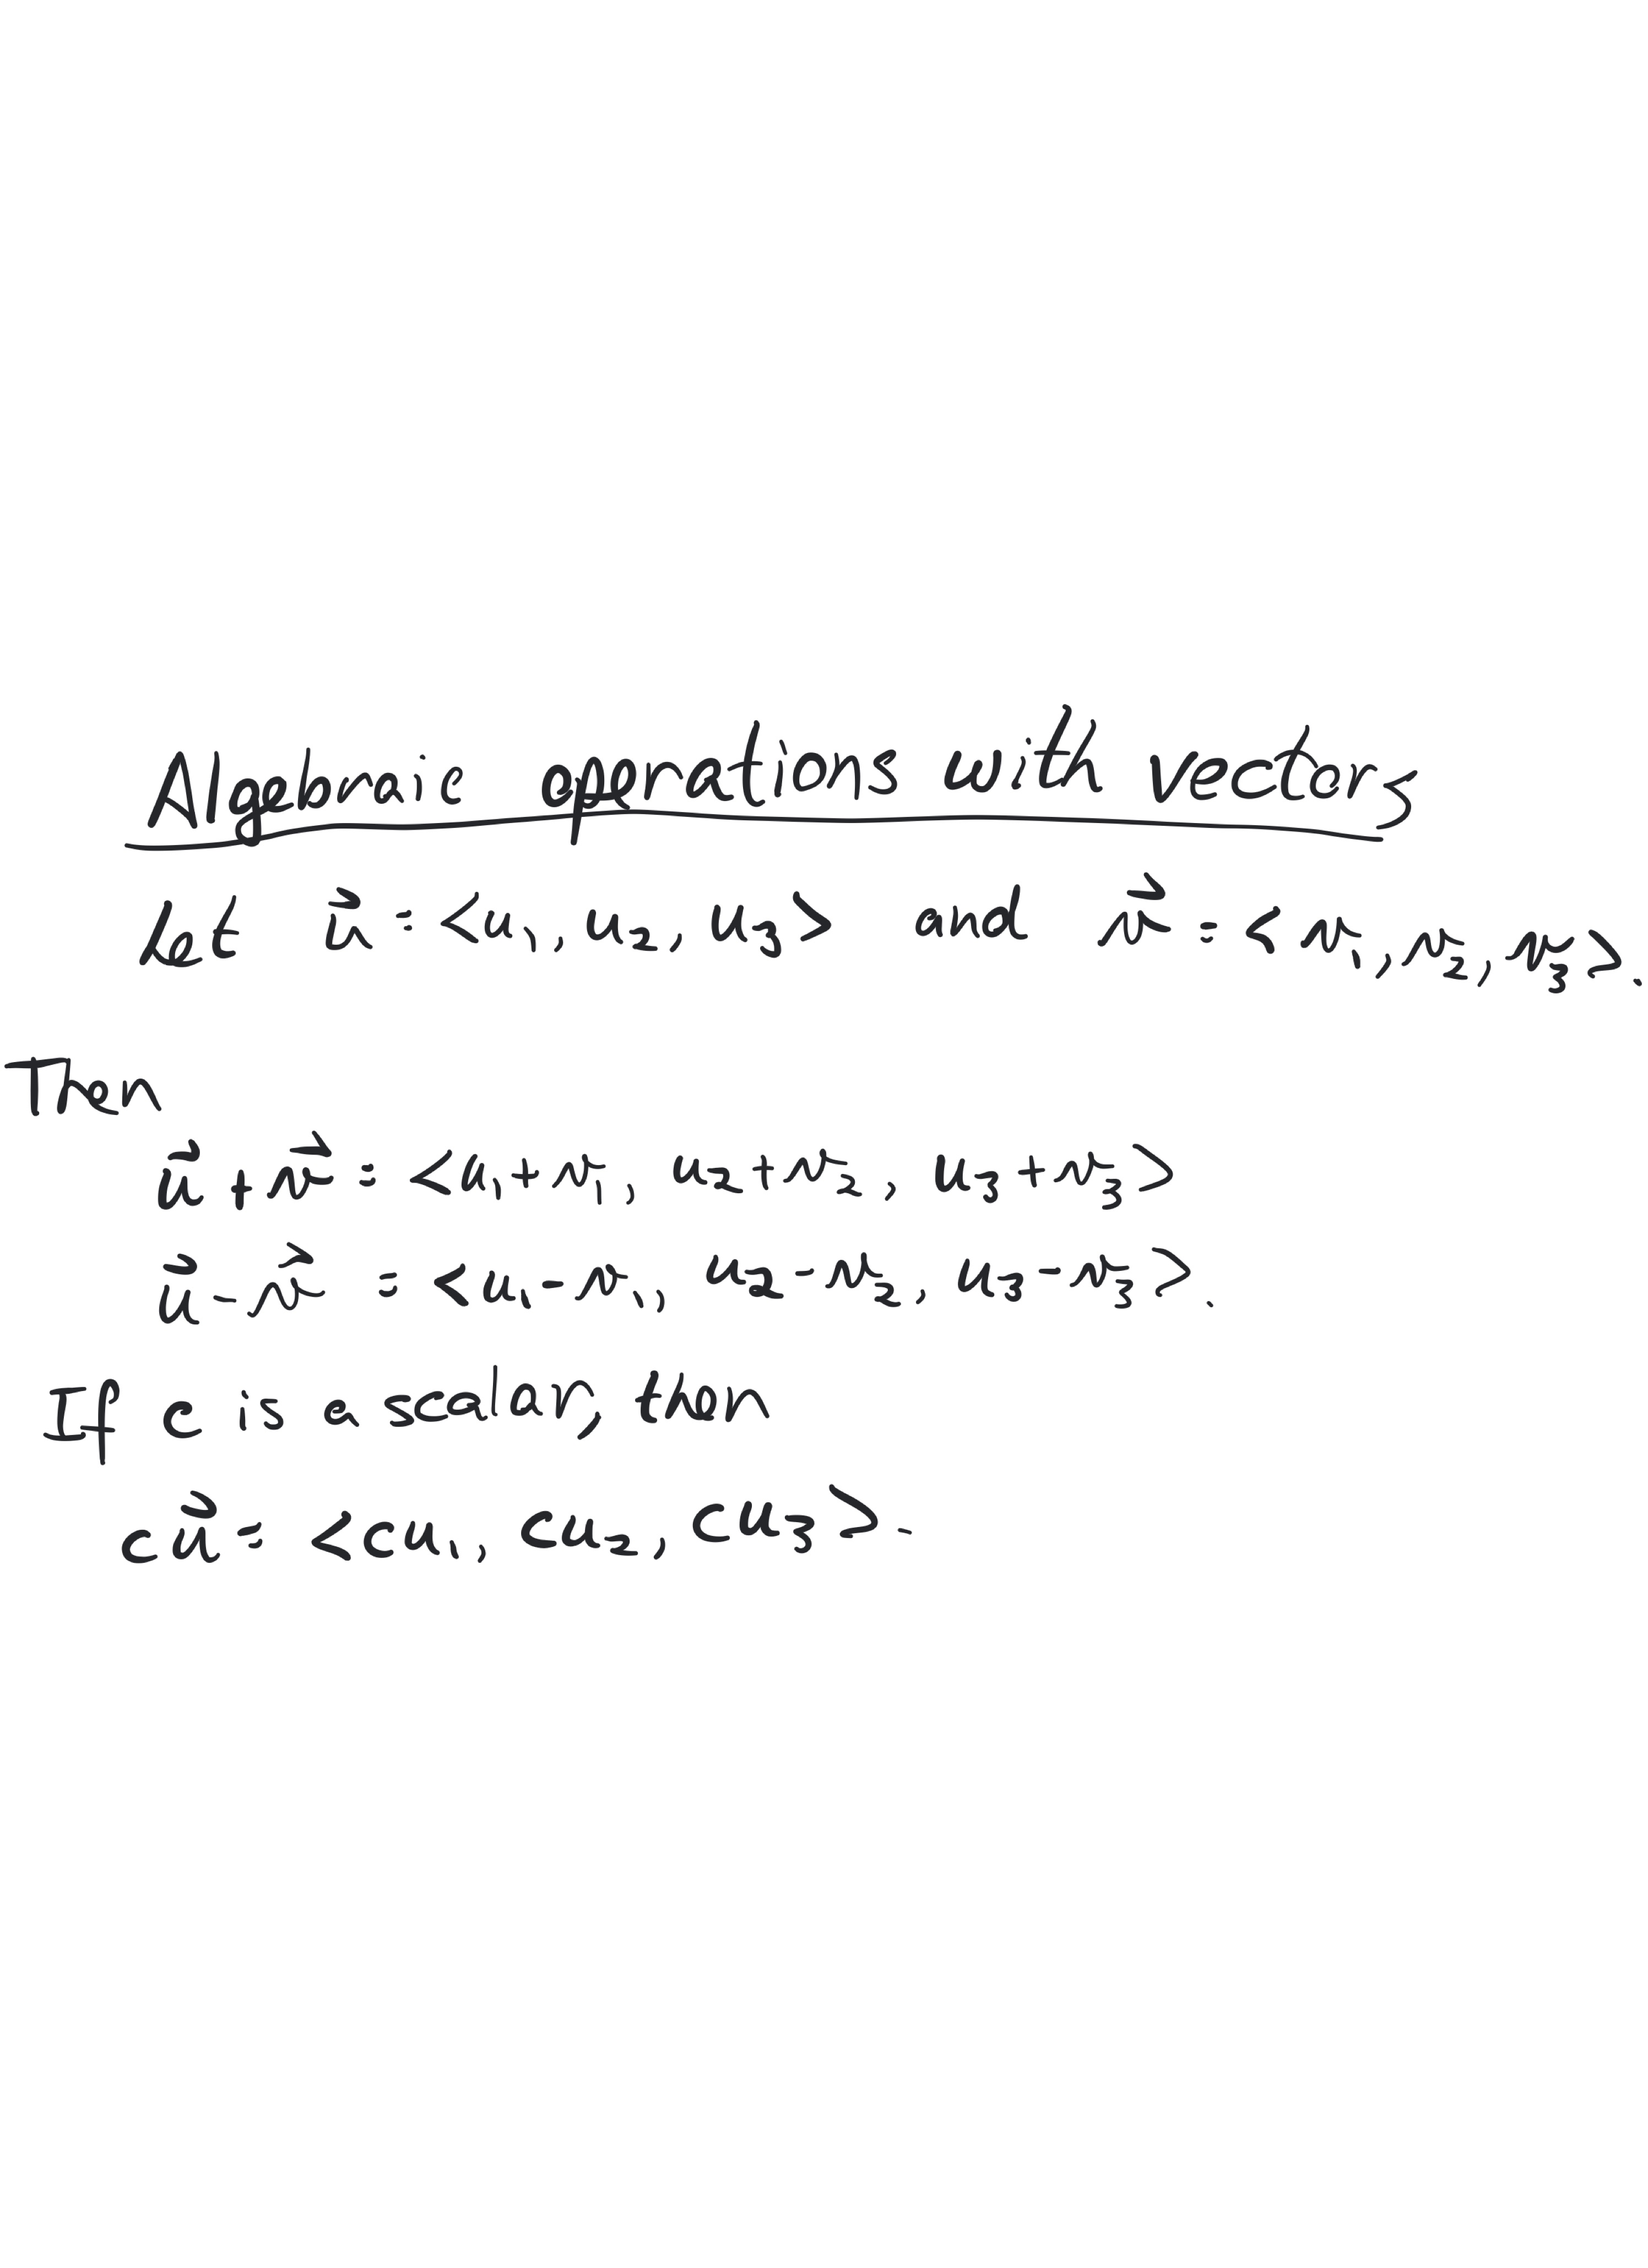 Algebraic operations with vectors
Let u⃗ = <u₁, u₂, u₃> and v⃗ = <v₁, v₂, v₃>.
Then
u⃗ + v⃗ = <u₁+v₁, u₂+v₂, u₃+v₃>
u⃗ - v⃗ = <u₁-v₁, u₂-v₂, u₃-v₃>.
If c is a scalar, then
c u⃗ = <cu₁, cu₂, cu₃>.